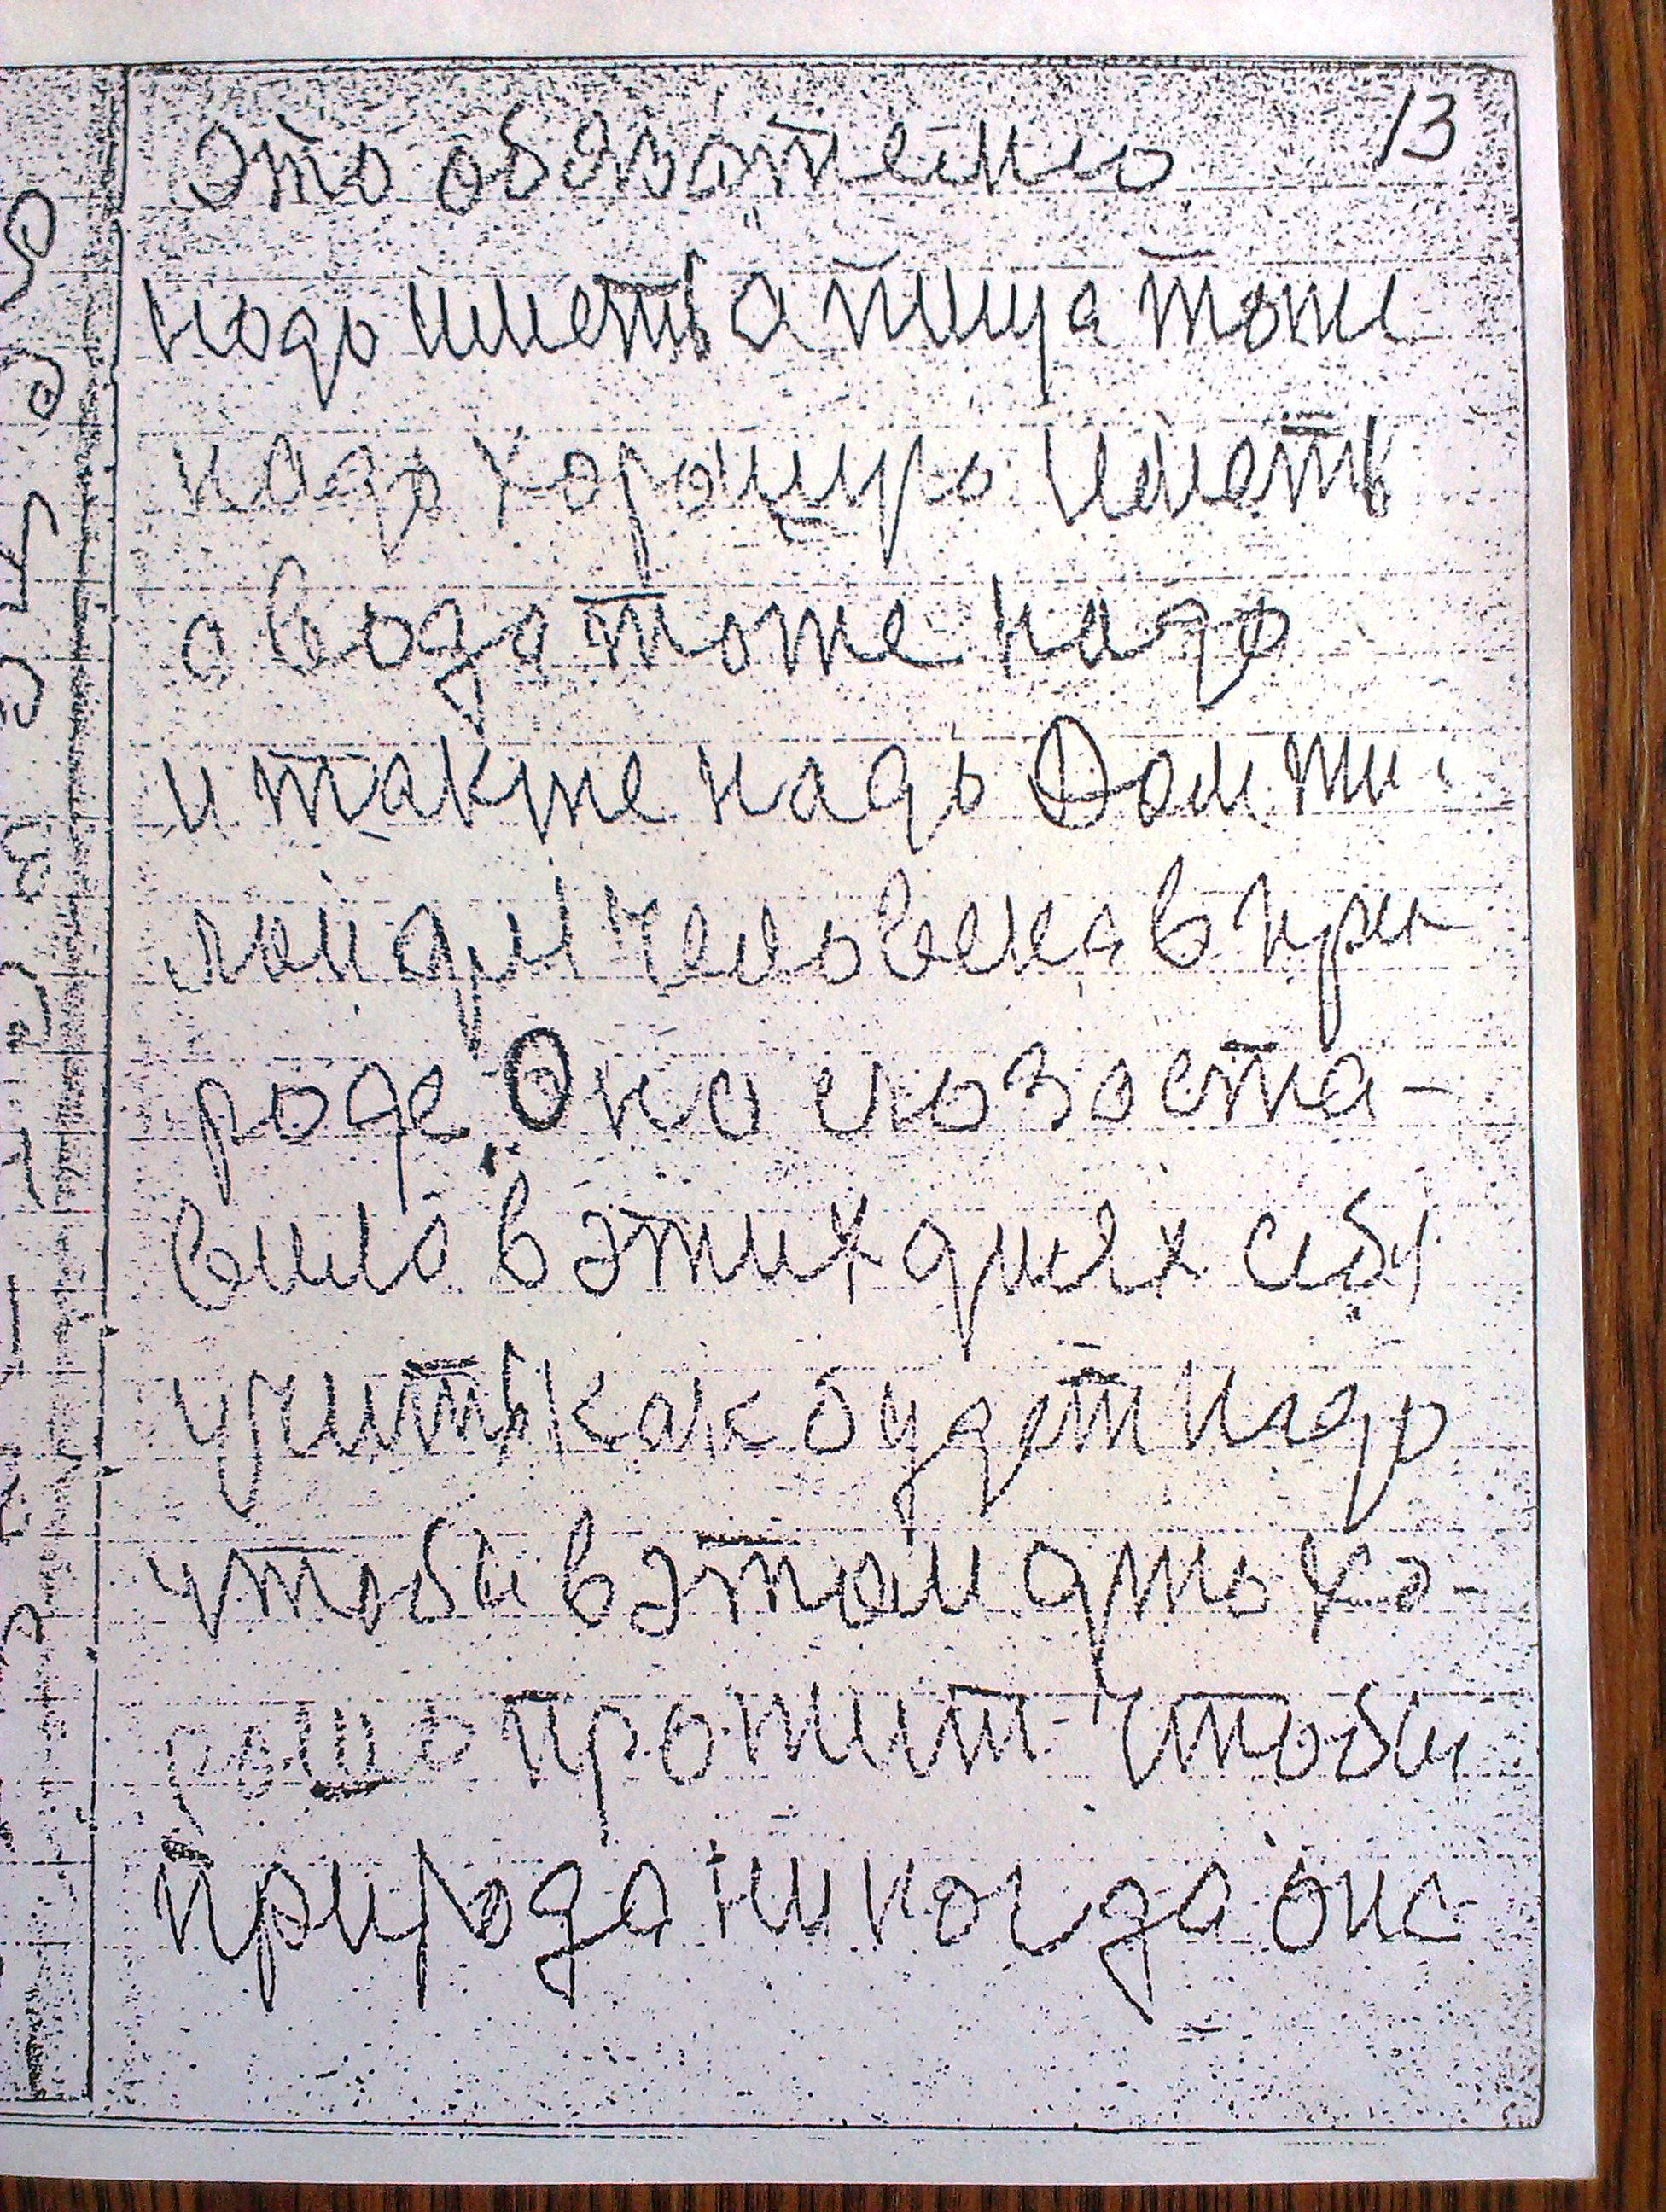 13
Это обязательно
надо иметь а пища тоже
надо хорошую иметь
а вода тоже надо
и также надо Дом жи-
лой для человека в при-
роде. Она его заста-
вила в этих днях себя
учить как будет надо
чтобы в этом дню хо-
рошо прожить чтобы
природа никогда она